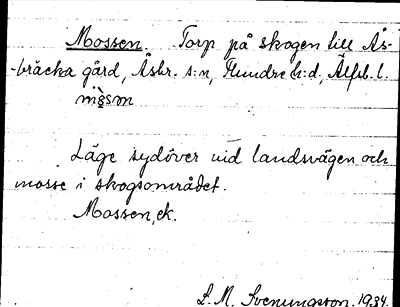 Mossen. Torp på skogen till Ås-
-bräcka gård, Åsbr. s:n, Flundre h:d, Älfsb. l.
mòsm
Läge sydöver vid landsvägen och
mosse i skogsområdet.
Mossen, ek.
L. M. Svenungsson. 1934.